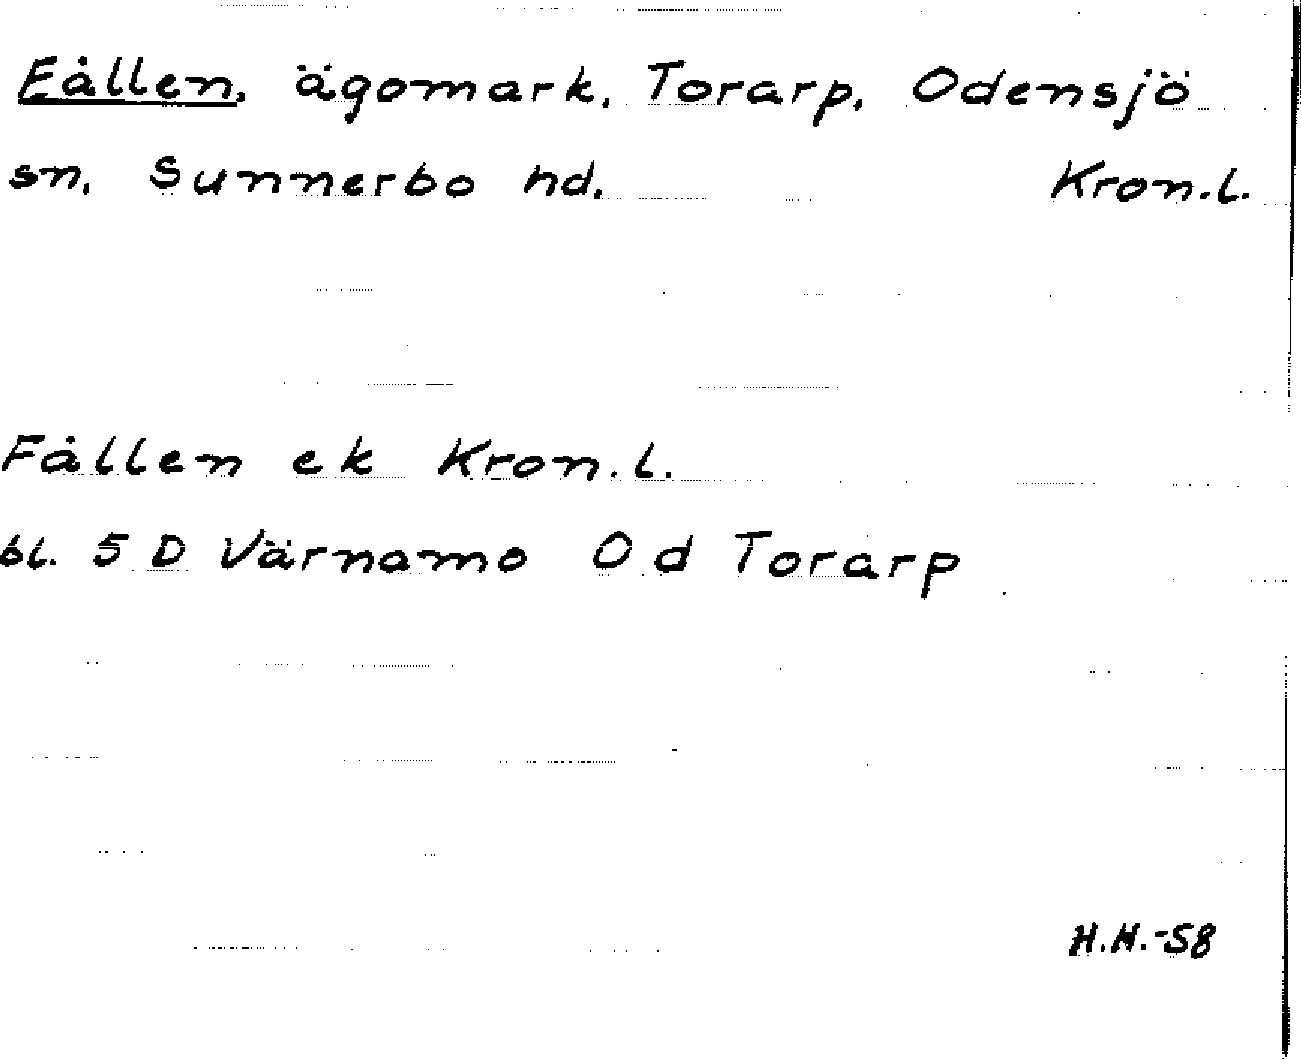 Fållen, ägomark, Torarp, Odensjö
sn, Sunnerbo hd. Kron.l.
Fållen ek Kron.l.
bl. 5 D Värnamo Od Torarp
H.H.-58